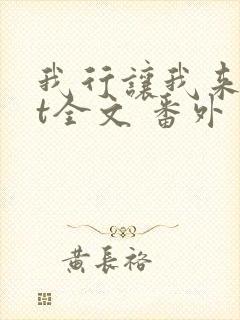 我行讓我来
t全文 番外
黄長裕